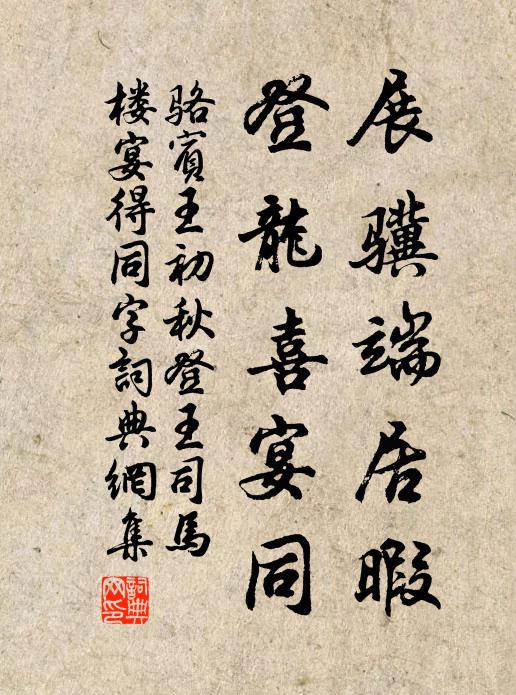 展驥端居暇
登龍喜宴同
駱賓王初秋登王司馬
楼宴得同字詞典網集